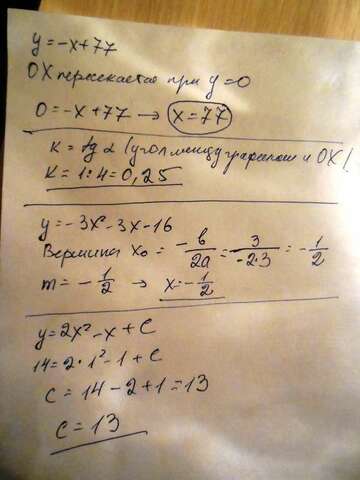 y=-x+77
OX пересекается при y=0
0=-x+77 → x=77
k=tg α (угол между графиком и OX).
k=1:4=0,25
y=-3x²-3x-16
Вершина x₀ = -b/2a = 3/-2·3 = -1/2
m = -1/2 → x=-1/2
y=2x²-x+C
14=2·1²-1+C
C=14-2+1=13
C=13